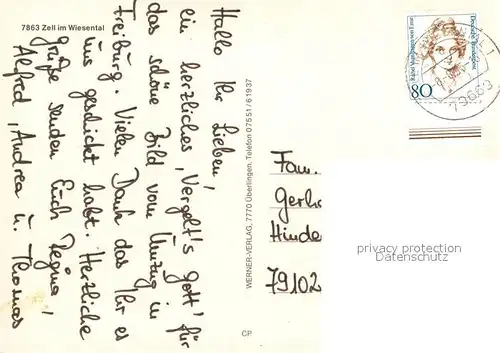 7863 Zell im Wiesental
Hallo Ihr Lieben,
ein herzliches „Vergelt's Gott' für
das schöne Bild vom Umzug in
Freiburg. Vielen Dank das Ihr es
uns geschickt habt. Herzliche
Grüße senden Euch Regina,
Alfred, Andrea u. Thomas
WERNER-VERLAG, 7770 Überlingen, Telefon 07551/61937
CP
Deutsche Bundespost
Rahel Varnhagen von Ense
80
79669
Fam.
Gerh
Hinde
79102
privacy protection
Datenschutz